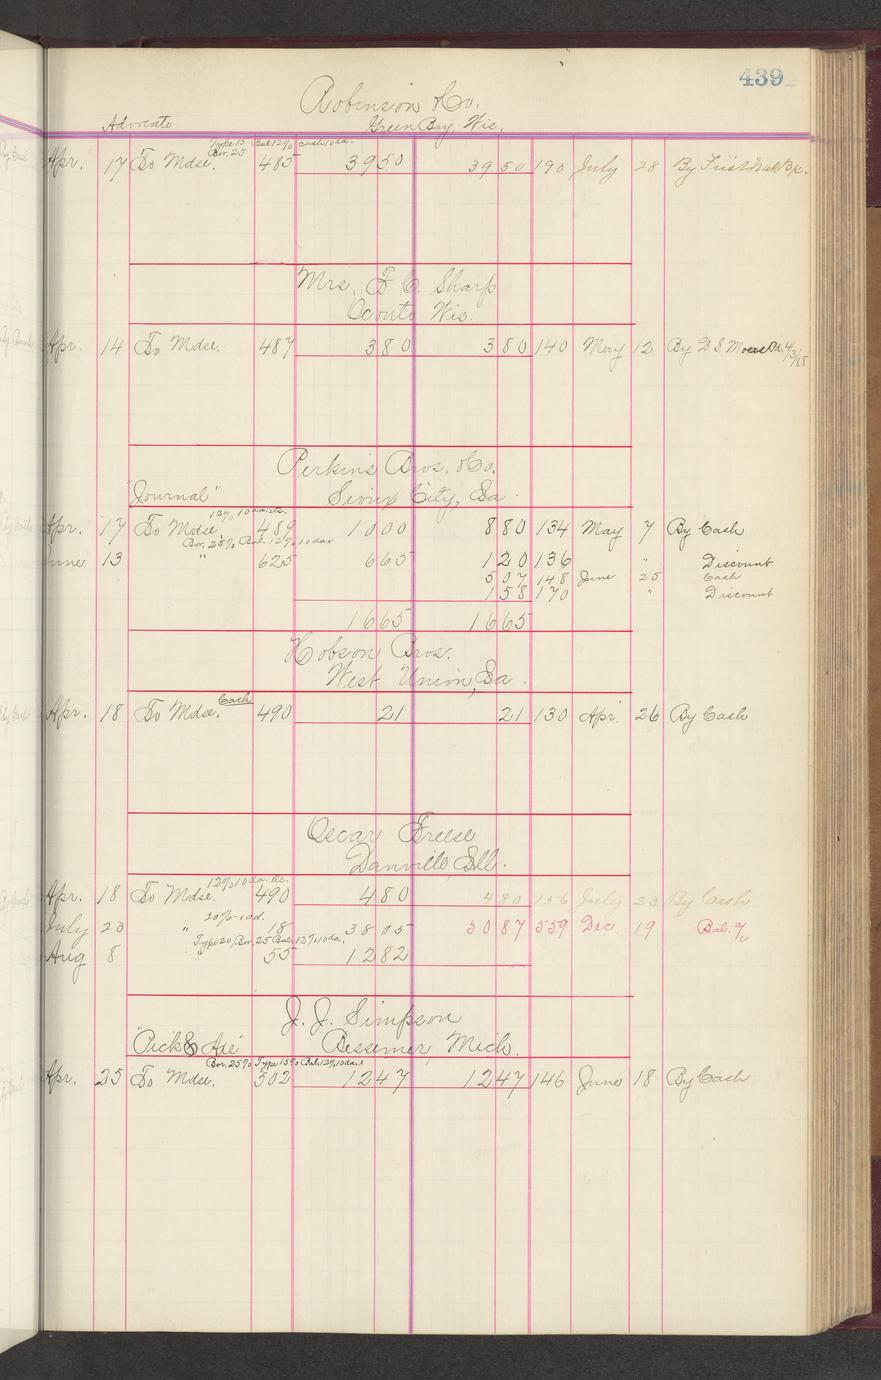 439
Robinson & Co.
Advocate Green Bay, Wis.
Type 15 Bal 12% cash 10 da.
Bor. 25
Apr. 17 To Mdse. 485 39 50 39 50 190 July 28 By First Nat. Bk.
Mrs. F C. Sharp
Oconto Wis.
Apr. 14 To Mdse. 487 3 80 3 80 140 May 12 By D S
Perkins Bros. & Co.
"Journal" Sioux City, Ia.
12% 10 da. etc.
Apr. 17 To Mdse 489 10 00 8 80 134 May 7 By Cash
Bor. 25% Bal. 12% 10 da x
June 13 " 625 6 65 1 20 136 " Discount
5 07 148 June 25 Cash
1 58 170 " Discount
16 65 16 65
Hobson Bros.
West Union, Ia.
Cash
Apr. 18 To Mdse. 490 21 21 130 Apr. 26 By Cash
Oscar Freese
Danville, Ill.
12% 10 da. etc.
Apr. 18 To Mdse. 490 4 80 4 80 156 July 23 By Cash
20% - 10 d.
July 23 " 18 38 05 50 87 559 Dec. 19 Bal. a/c
Type 20, Bor. 25 Bal. 12% 10 da.
Aug 8 55 12 82
J. J. Simpson
"Pick & Axe" Bessemer, Mich.
Bor. 25% Type 15% Bal. 12% 10 da x
Apr. 25 To Mdse. 502 12 47 12 47 146 June 18 By Cash